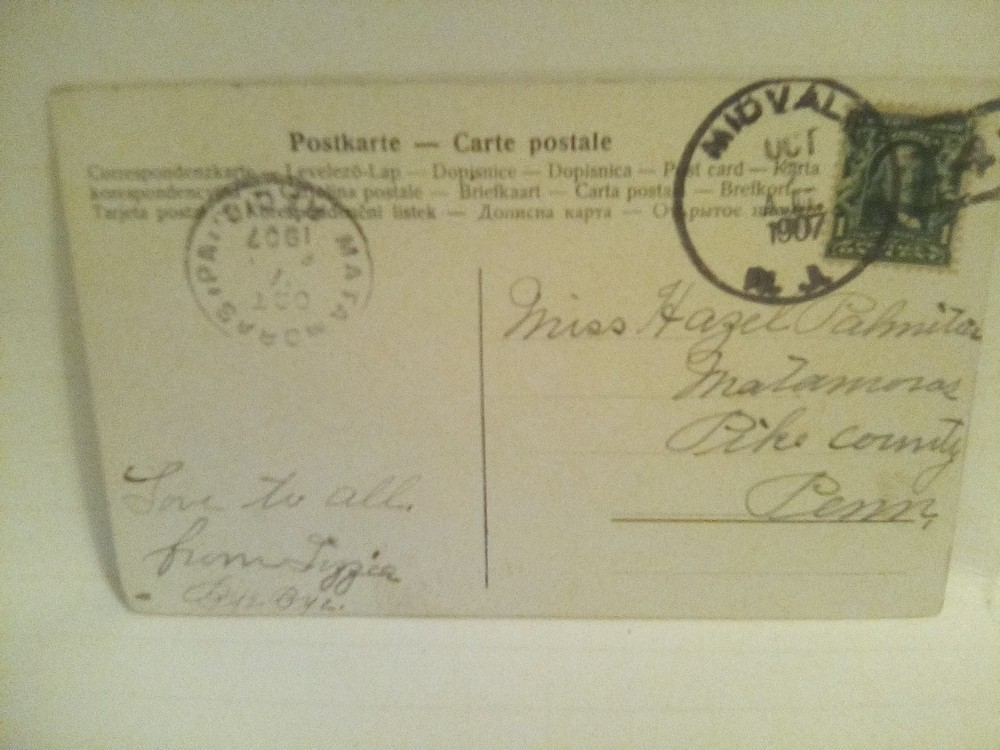 Postkarte — Carte postale
Correspondenzkarte — Levelező-Lap — Dopisnice — Dopisnica — Post card — Karta
korespondencyjna — Cartolina postale — Briefkaart — Carta postala — Brefkort —
Tarjeta postal — Korespondenční listek — Дописна карта — Открытое письмо
MIDVALE
OCT
4
1907
N. J.
MATAMORAS, PA.
REC'D.
1907
OCT
Miss Hazel Palmiter
Matamoras
Pike county
Penn,
Love to all.
from Lizzie
Bye Bye.